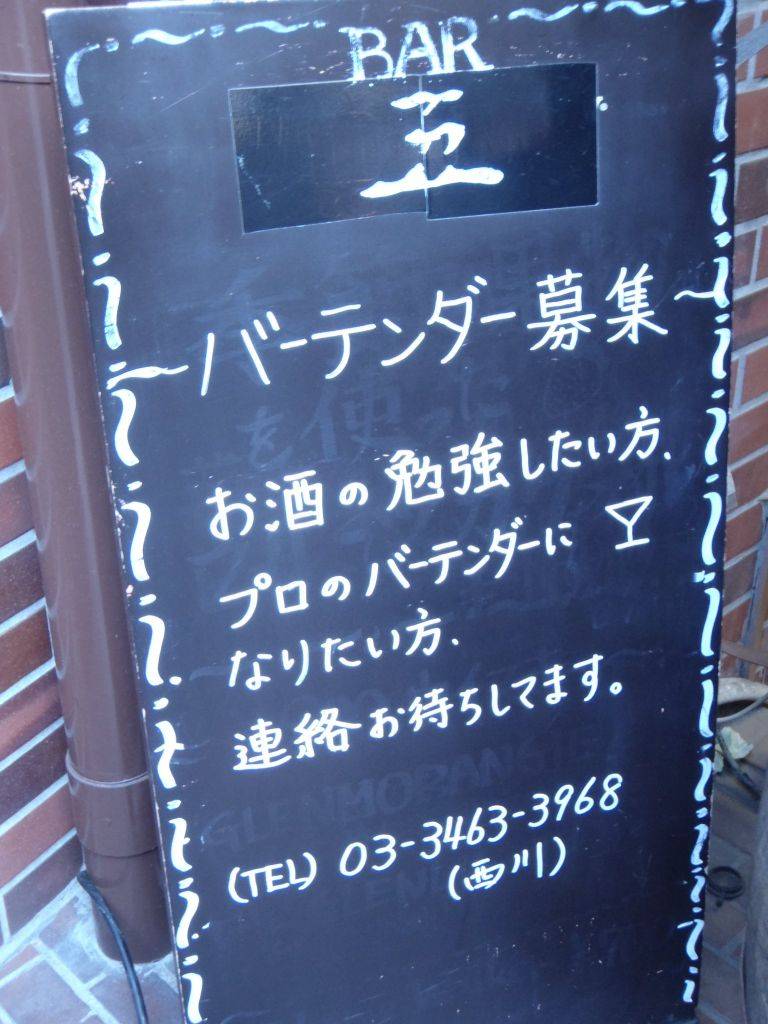 BAR
バーテンダー募集
お酒の勉強したい方、
プロのバーテンダーに
なりたい方、
連絡お待ちしてます。
(TEL) 03-3463-3968
(西川)